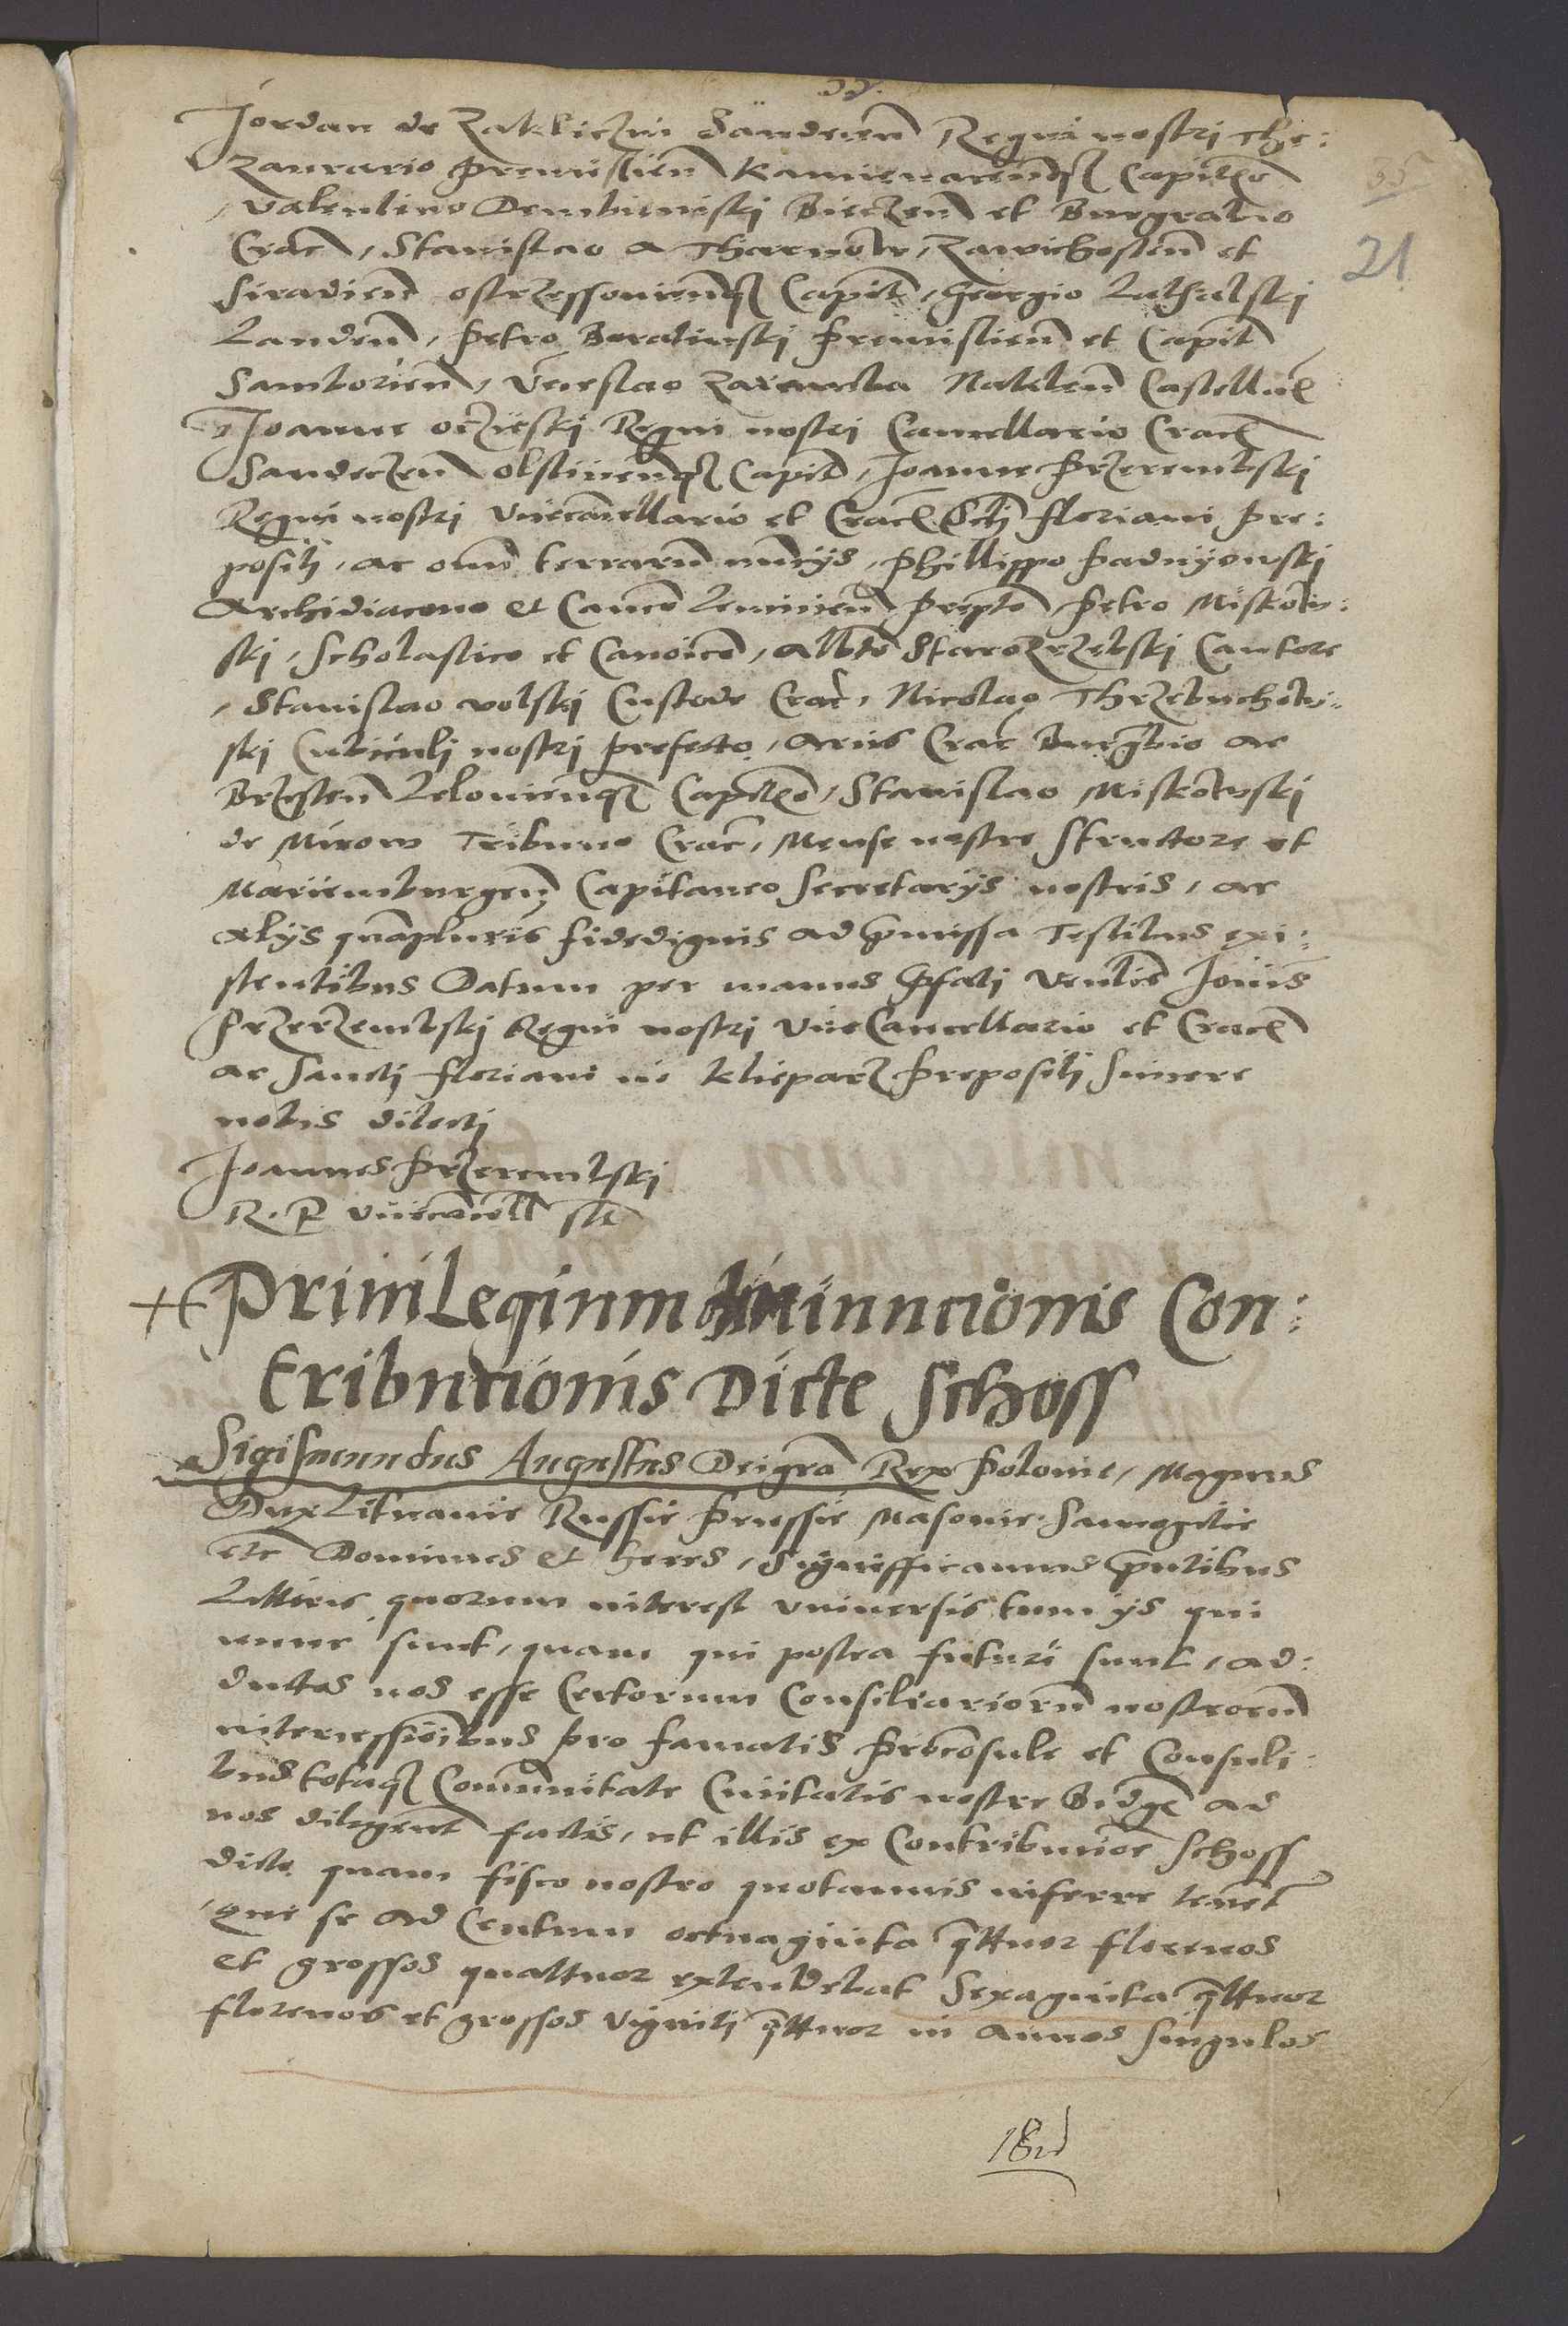 35
21
Jordan de Zakliczin Sandecen̄ Regni nostri The:
zaurario Premislien̄ Kamienacen̄qz Capitēo
Valentino Dembienski Bieczen̄ et Burgrabio
Crac̄, Stanislao a Tharnow, Zawichosten̄ et
Siradien̄ ostrzessovien̄qz Capit̄, Georgio Lathalski
Landen̄, Petro Boratinski Premislien̄ et Capit̄
Samborien̄, Venslao Zaremba Naklen̄ Castelln̄
Joanne oczieski Regni nostri Cancellario Crac̄
Sandeczen̄ olstinen̄qz Capit̄, Joanne Przerembski
Regni nostri Vicecancellario et Crac̄ Scti floriani pre:
positi, ac om̄ terrarū nuncijs, Phillippo Padnyewski
Archidiacono et Canco Lencicien̄ prepto, Petro Miskow:
ski, Scholastico et Canoico, Albto Starozrzebski Cantore
, Stanislao volski Custode Crac̄, Nicolao Thrzebuchow:
ski Cubiculi nostri prefecto, Arcis Crac̄ Burgbio ac
Brzesten̄ Lelovien̄qz Capiteo, Stanislao Miskowski
de Mirow Tribuno Crac̄, Mense nostre structore et
Mariemburgen̄ Capitaneo Secretarijs nostris, ac
alijs quāpluris fidedignis ad p̄missa Testibus exi:
stentibus Datum per manus p̄fati Venlis Jōnis
Przerzembski Regni nostri ViceCancellario et Crac̄
ac Sancti floriani in Klieparz Prepositi sincere
nobis dilecti
Joannes Przerembski
R. P Vicecancell sst
Privilegium diminucionis Con:
tribucionis Dicte Schoss
Sigismundus Augustus Dei gr̄a Rex Polonie, Magnus
Dux Lituanie Russie Prussie Masovie Samogitie
etc Dominus et heres, Significamus p̄ntibus
Litteris quorum interest universis tum ijs qui
nunc sunt, quam qui postea futuri sunt, ad:
ductos nos esse Certorum Consiliariorū nostrorū
intercessioibus pro famatis Proconsule et Consuli:
bus totaqz Communitate Civitatis nostre Bidḡ ad
nos diligent̄ factis, ut illis ex Contribucioe Schoss
dicte quam fisco nostro quotannis inferre tenet̄
que se ad Centum octuaginta q̄ttuor florenos
et grossos quattuor extendebat Sexaginta q̄ttuor
florenos et grossos viginti q̄ttuor in annos singulos